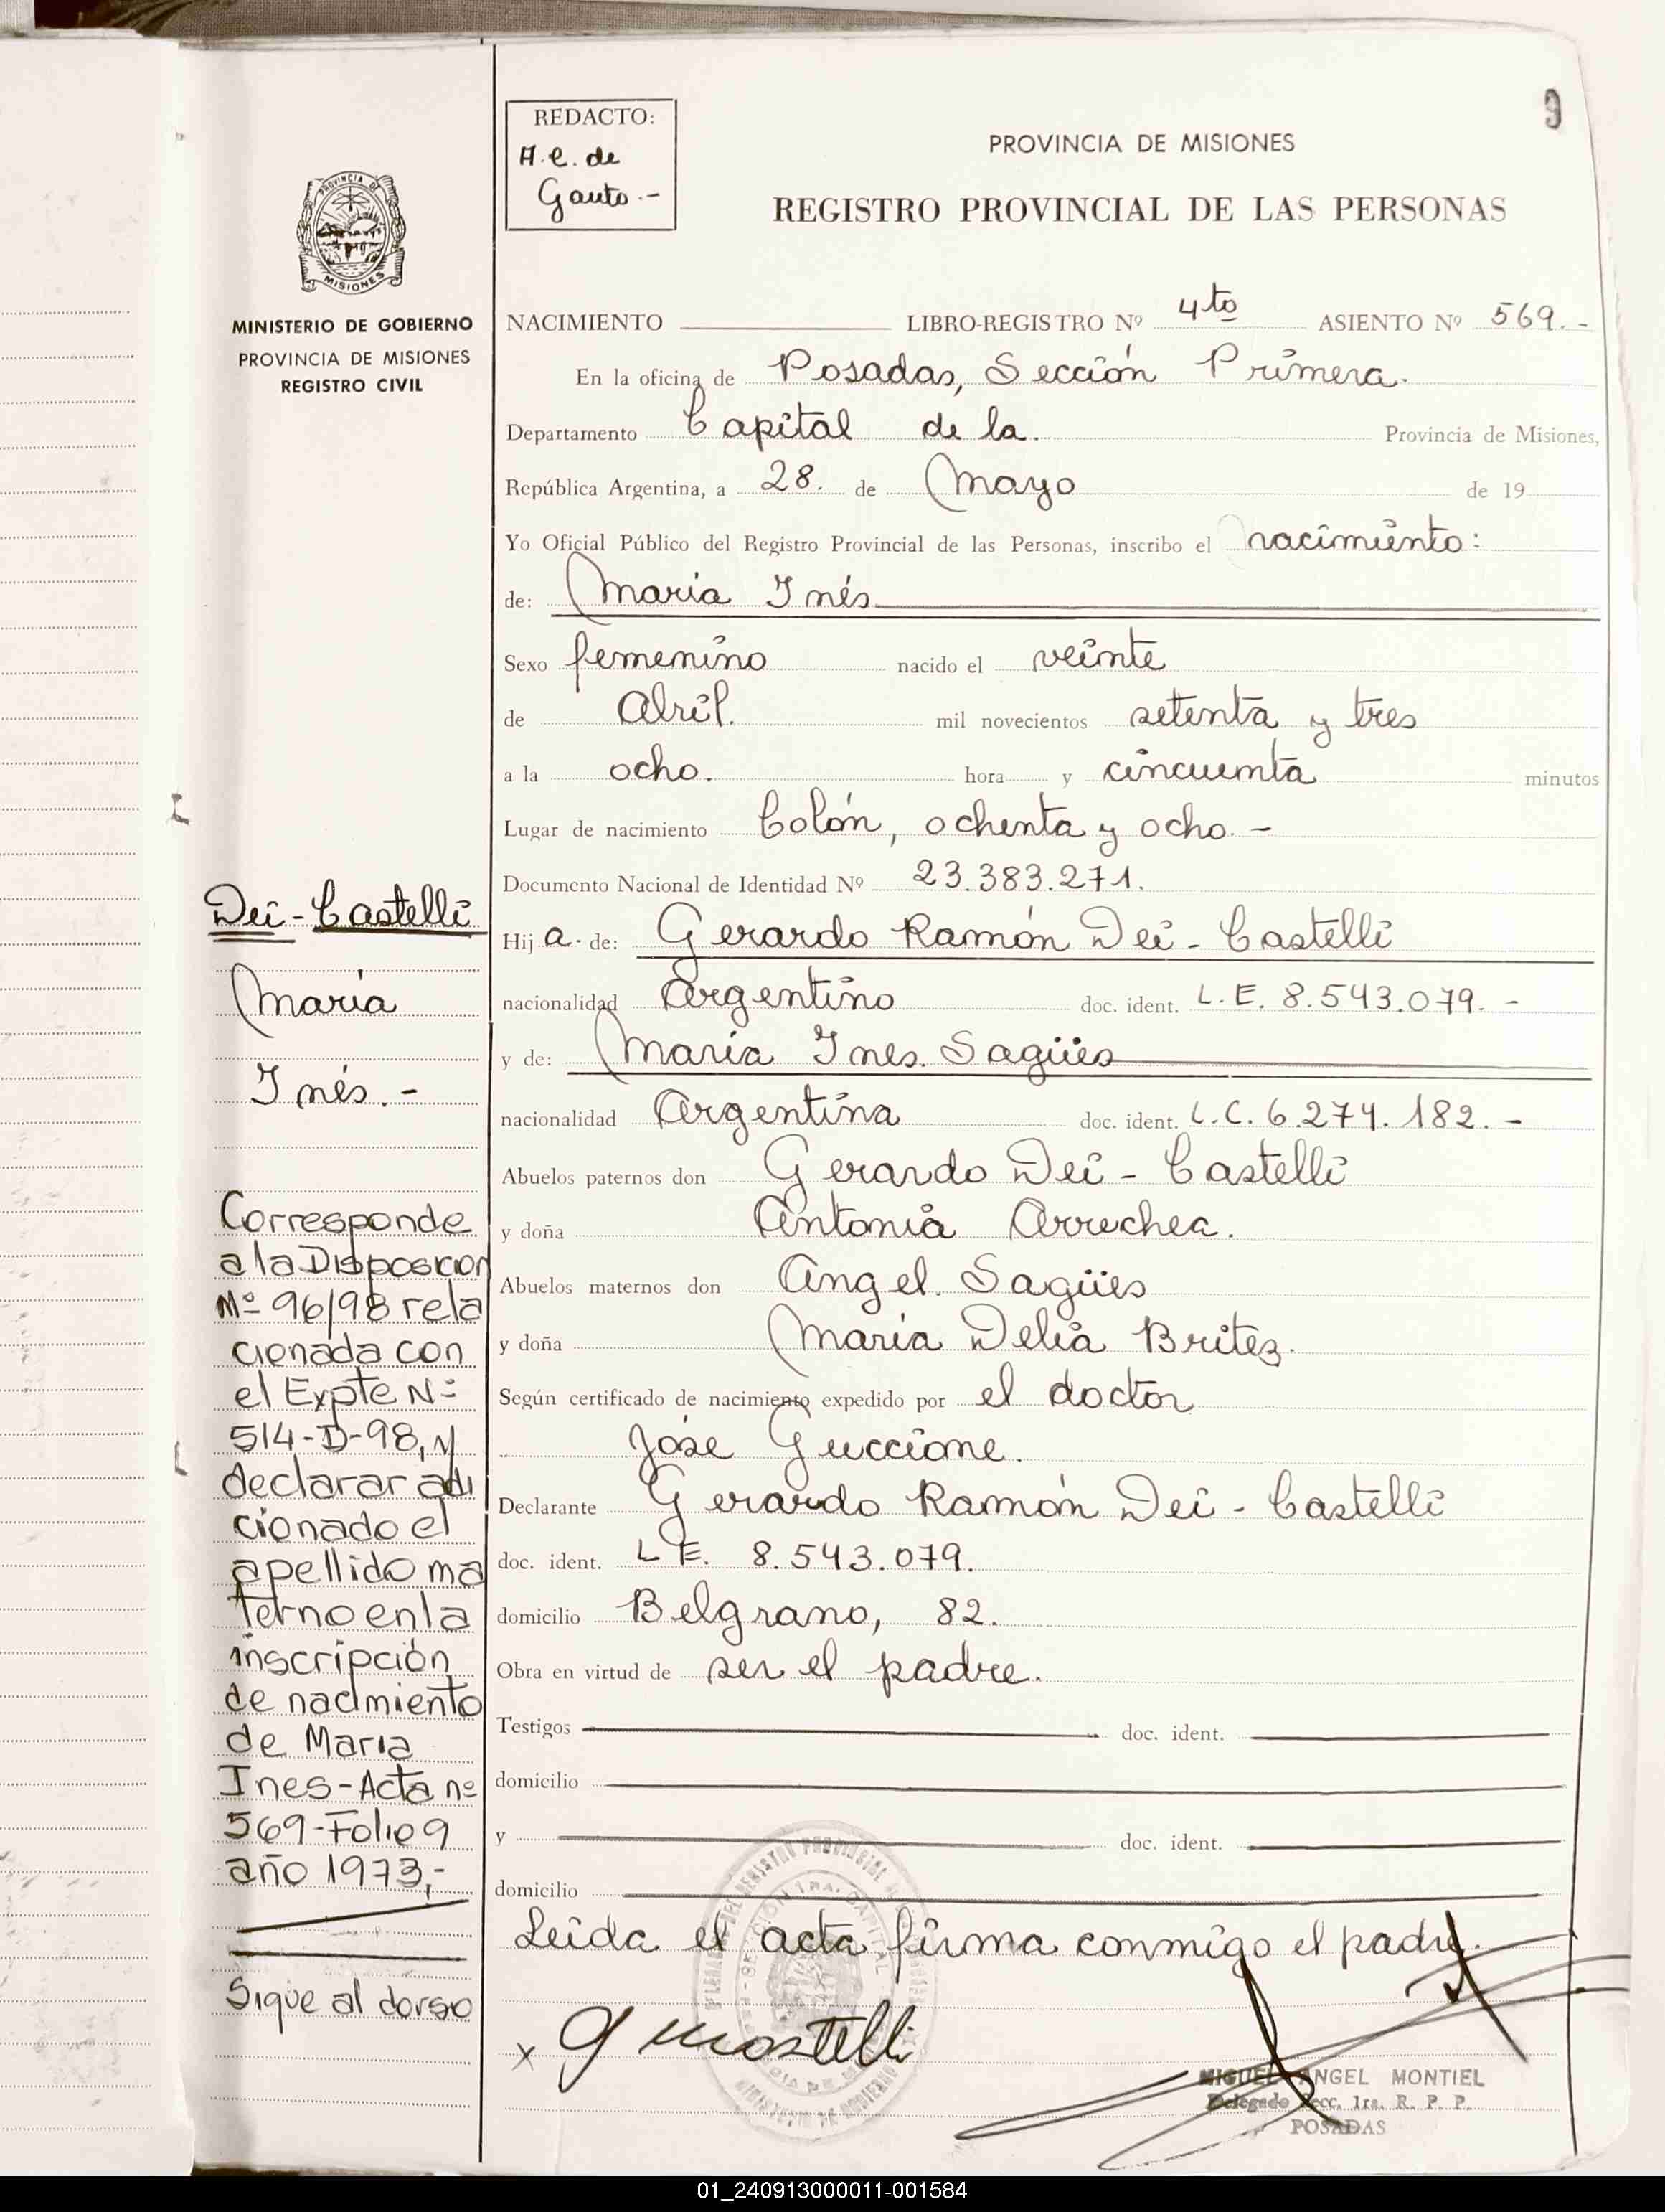 9
REDACTO:
A.e. de
Gauto.-
PROVINCIA DE MISIONES
REGISTRO PROVINCIAL DE LAS PERSONAS
PROVINCIA DE
MISIONES
MINISTERIO DE GOBIERNO
PROVINCIA DE MISIONES
REGISTRO CIVIL
NACIMIENTO LIBRO-REGISTRO Nº 4to ASIENTO Nº 569.-
En la oficina de Posadas, Sección Primera.
Departamento Capital de la. Provincia de Misiones,
República Argentina, a 28. de Mayo de 19
Yo Oficial Público del Registro Provincial de las Personas, inscribo el nacimiento:
de: Maria Inés
Sexo femenino nacido el veinte
de Abril. mil novecientos setenta y tres
a la ocho. hora y cincuenta minutos
Lugar de nacimiento Colón, ochenta y ocho.-
Documento Nacional de Identidad Nº 23.383.271.
Hij a. de: Gerardo Ramón Dei-Castelli
nacionalidad Argentino doc. ident. L.E. 8.543.079.-
y de: Maria Ines. Sagües
nacionalidad Argentina doc. ident. L.C. 6.274.182.-
Abuelos paternos don Gerardo Dei-Castelli
y doña Antonia Arrechea.
Abuelos maternos don Angel. Sagües
y doña Maria Delia Britez.
Según certificado de nacimiento expedido por el doctor
José Guccione.
Declarante Gerardo Ramón Dei-Castelli
doc. ident. L E. 8.543.079.
domicilio Belgrano, 82.
Obra en virtud de ser el padre.
Testigos doc. ident.
domicilio
y doc. ident.
domicilio
Leida el acta firma conmigo el padre.
x
MIGUEL ANGEL MONTIEL
Delegado Secc. 1ra. R. P. P.
POSADAS
Dei-Castelli
María
Inés.-
Corresponde
a la Disposicion
Nº 96/98 rela
cionada con
el Expte Nº
514-D-98, y
declarar adi
cionado el
apellido ma
terno en la
inscripción
de nacimiento
de Maria
Ines-Acta nº
569-Folio 9
año 1973,-
Sigue al dorso
01_240913000011-001584